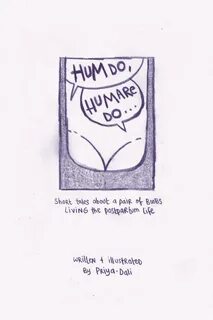 HUM DO,
HUMARE
DO...
Short tales about a pair of BooBS
LIVING the postpartum life
written + illustrated
By Priya-Dali